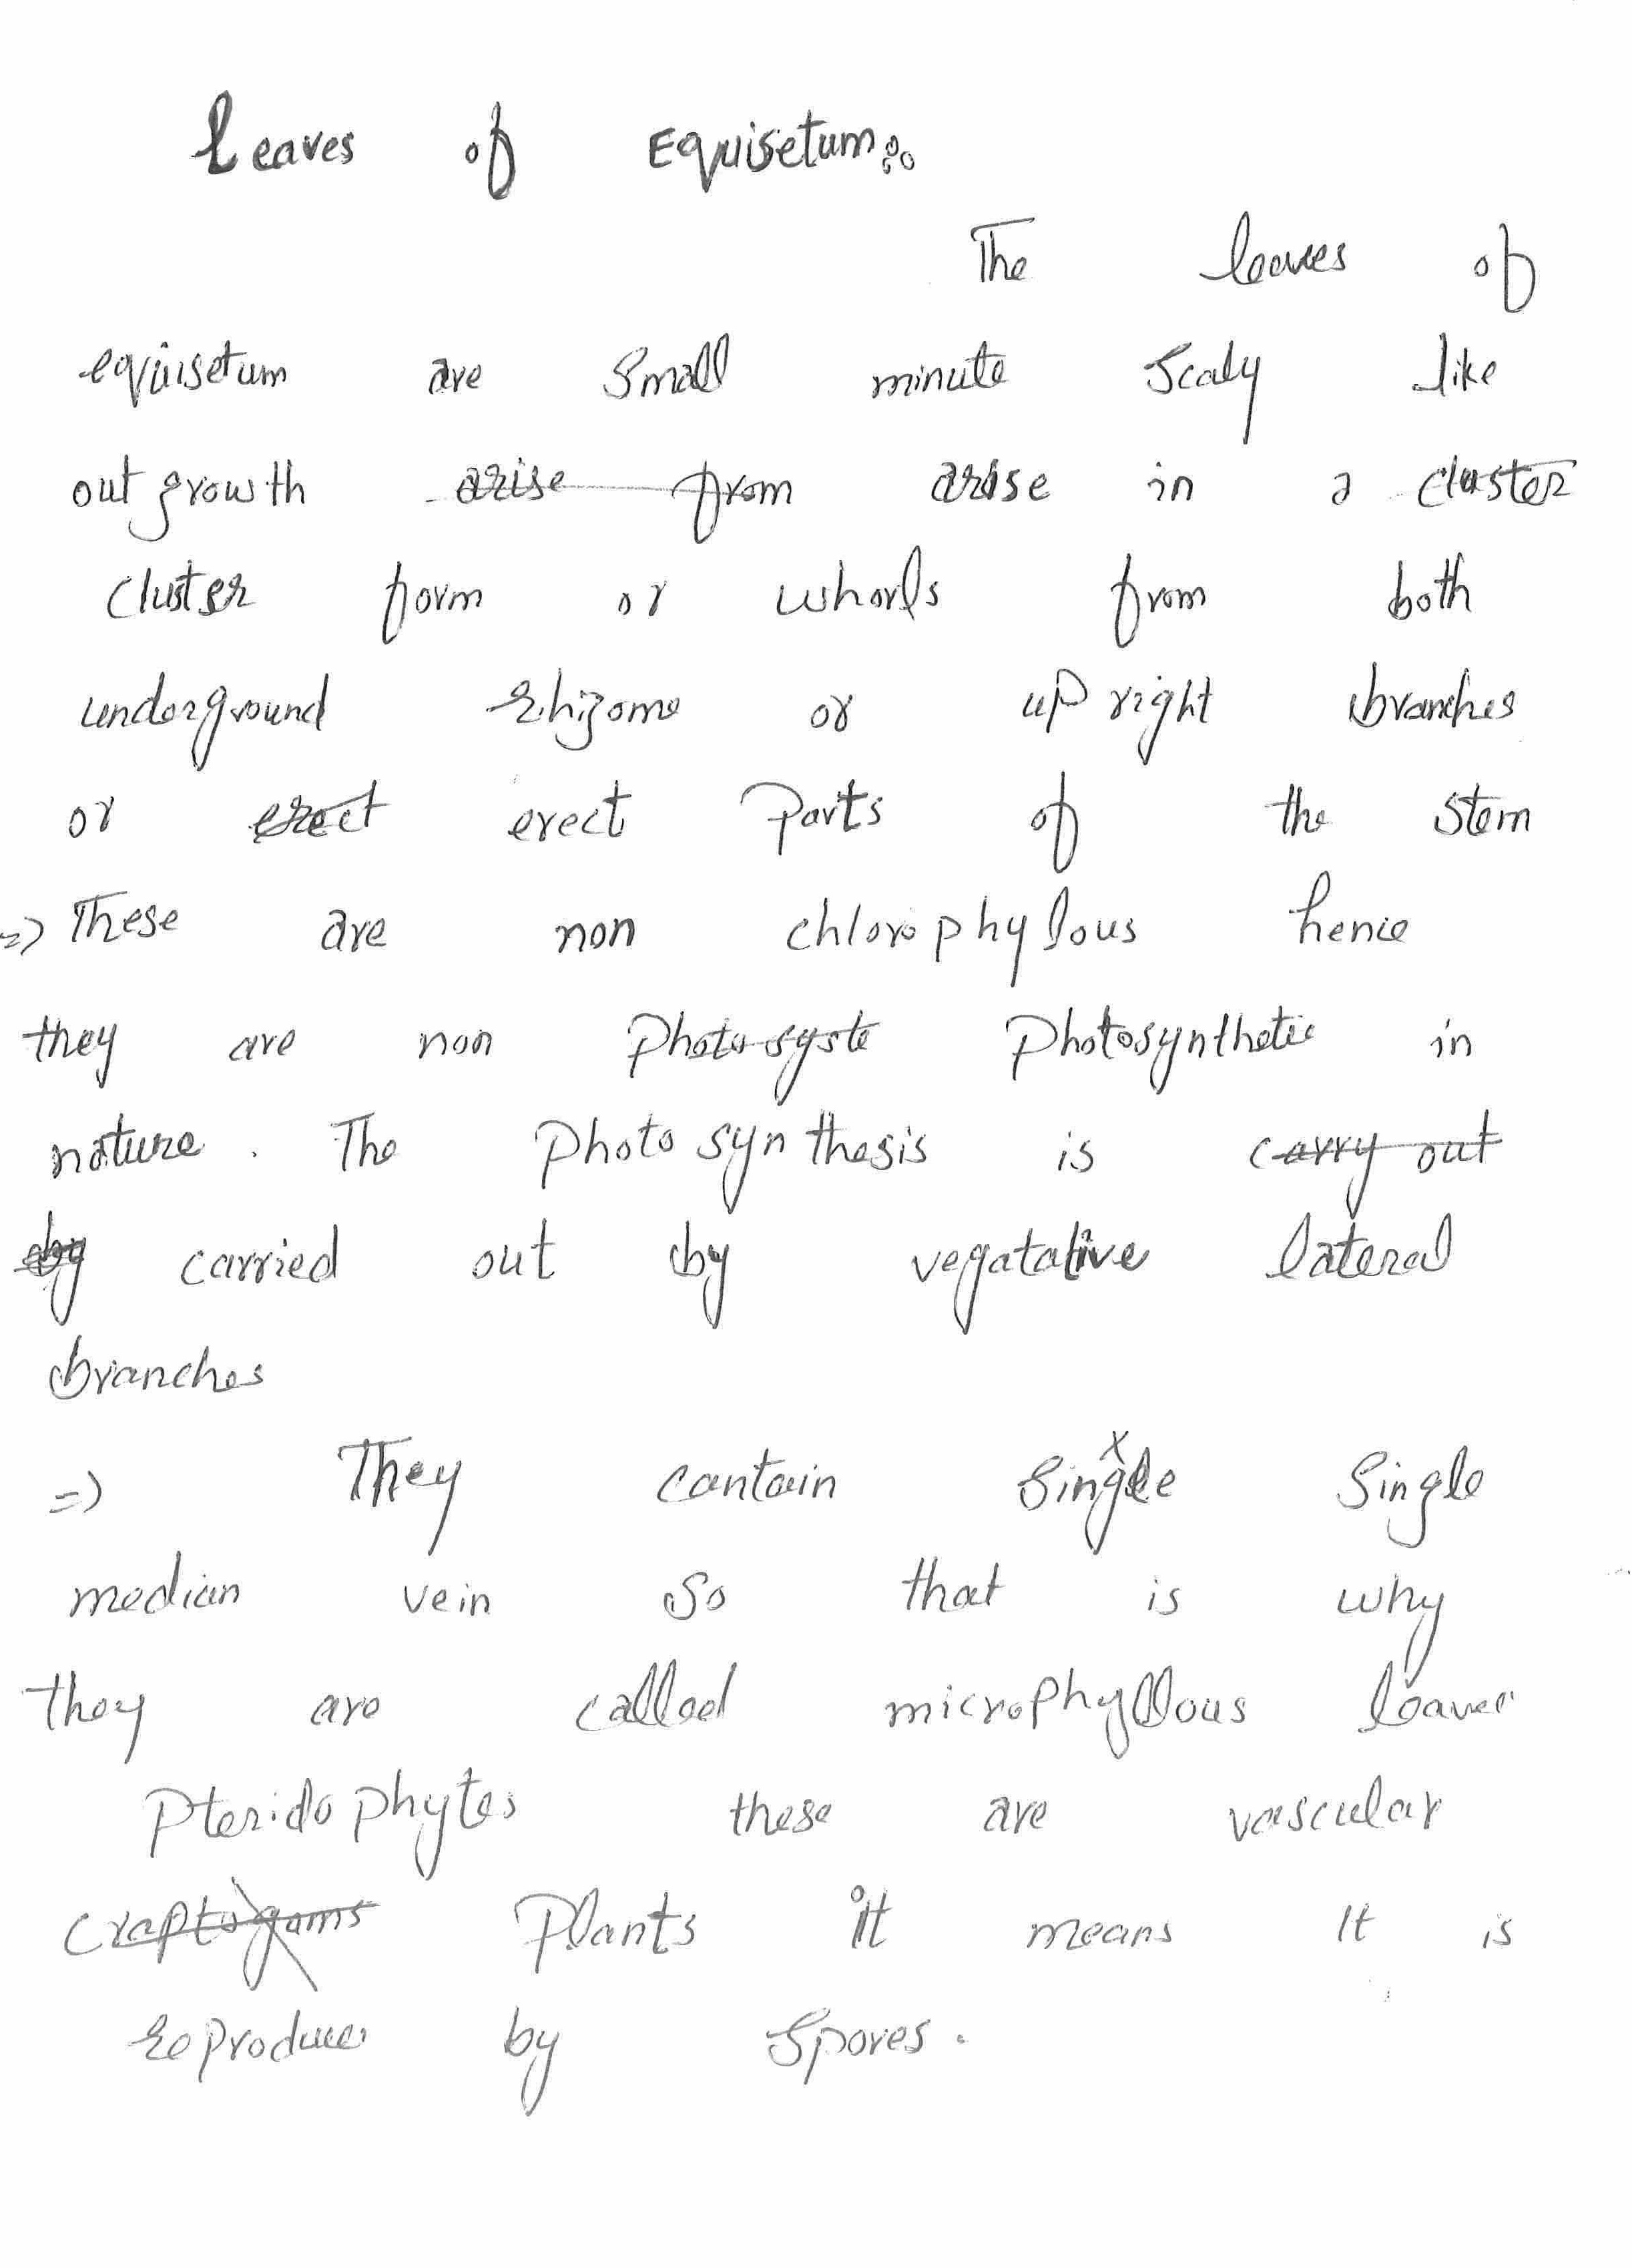 Leaves of Equisetum:
The leaves of
equisetum are small minute scaly like
out growth arise from arise in a cluster
cluster form or whorls from both
underground rhizome or up right branches
or erect erect parts of the stem
=> These are non chlorophylous hence
they are non photosyste photosynthetic in
nature. The photo synthesis is carry out
by carried out by vegatative lateral
branches
=> They contain single single
median vein so that is why
they are called microphyllous leaves
Pteridophytes these are vascular
craptogams plants it means It is
reproduces by spores.